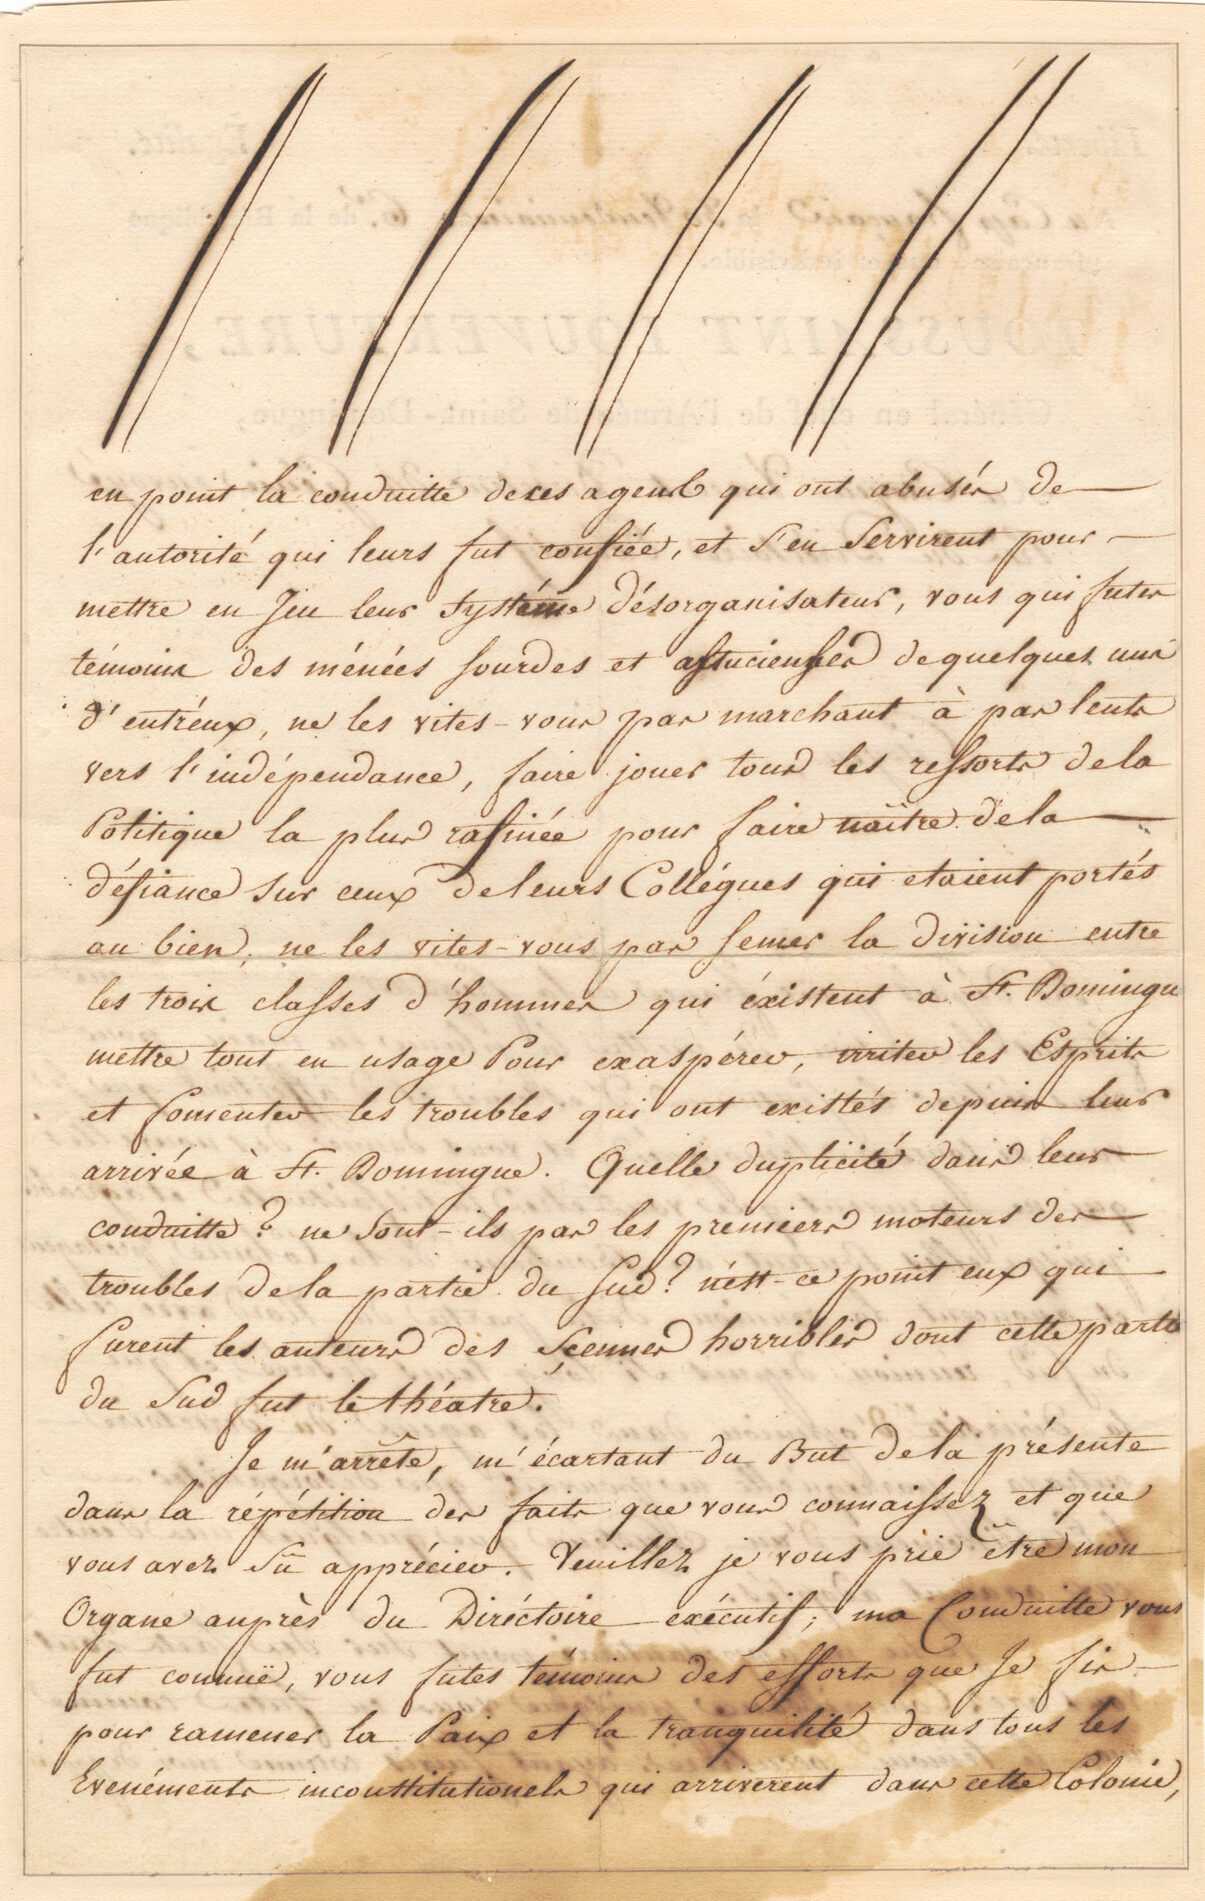 en point la conduitte de ces agents qui ont abusés de
l'autorité qui leurs fut confiée, et s'en servirent pour
mettre en Jeu leur systême désorganisateur, vous qui futes
témoins des ménées sourdes et astucieuses de quelques uns
d'entréux, ne les vites-vous pas marchant à pas lents
vers l'indépendance, faire jouer tous les ressorts de la
Politique la plus rafinée pour faire naître de la
défiance sur ceux de leurs Collégues qui etaient portés
au bien, ne les vites-vous pas semer la division entre
les trois classes d'hommes qui éxistent à St. Domingue
mettre tout en usage Pour exaspérer, irriter les Esprits
et fomenter les troubles qui ont existés depuis leur
arrivée à St. Domingue. Quelle duplicité dans leur
conduitte? ne sont-ils pas les premiers moteurs des
troubles de la partie du Sud? n'est-ce point eux qui
furent les auteurs des Scennes horribles dont cette partie
du Sud fut le théatre.
Je m'arrête, m'écartant du But de la présente
dans la répétition des faits que vous connaissez et que
vous avez sû apprécier. Veuillez je vous prie être mon
Organe auprès du Diréctoire exécutif; ma Conduitte vous
fut connuë, vous futes témoins des efforts que Je fis
pour ramener la Paix et la tranquilité dans tous les
Evenéments inconstitutionels qui arriverent dans cette Colonie,